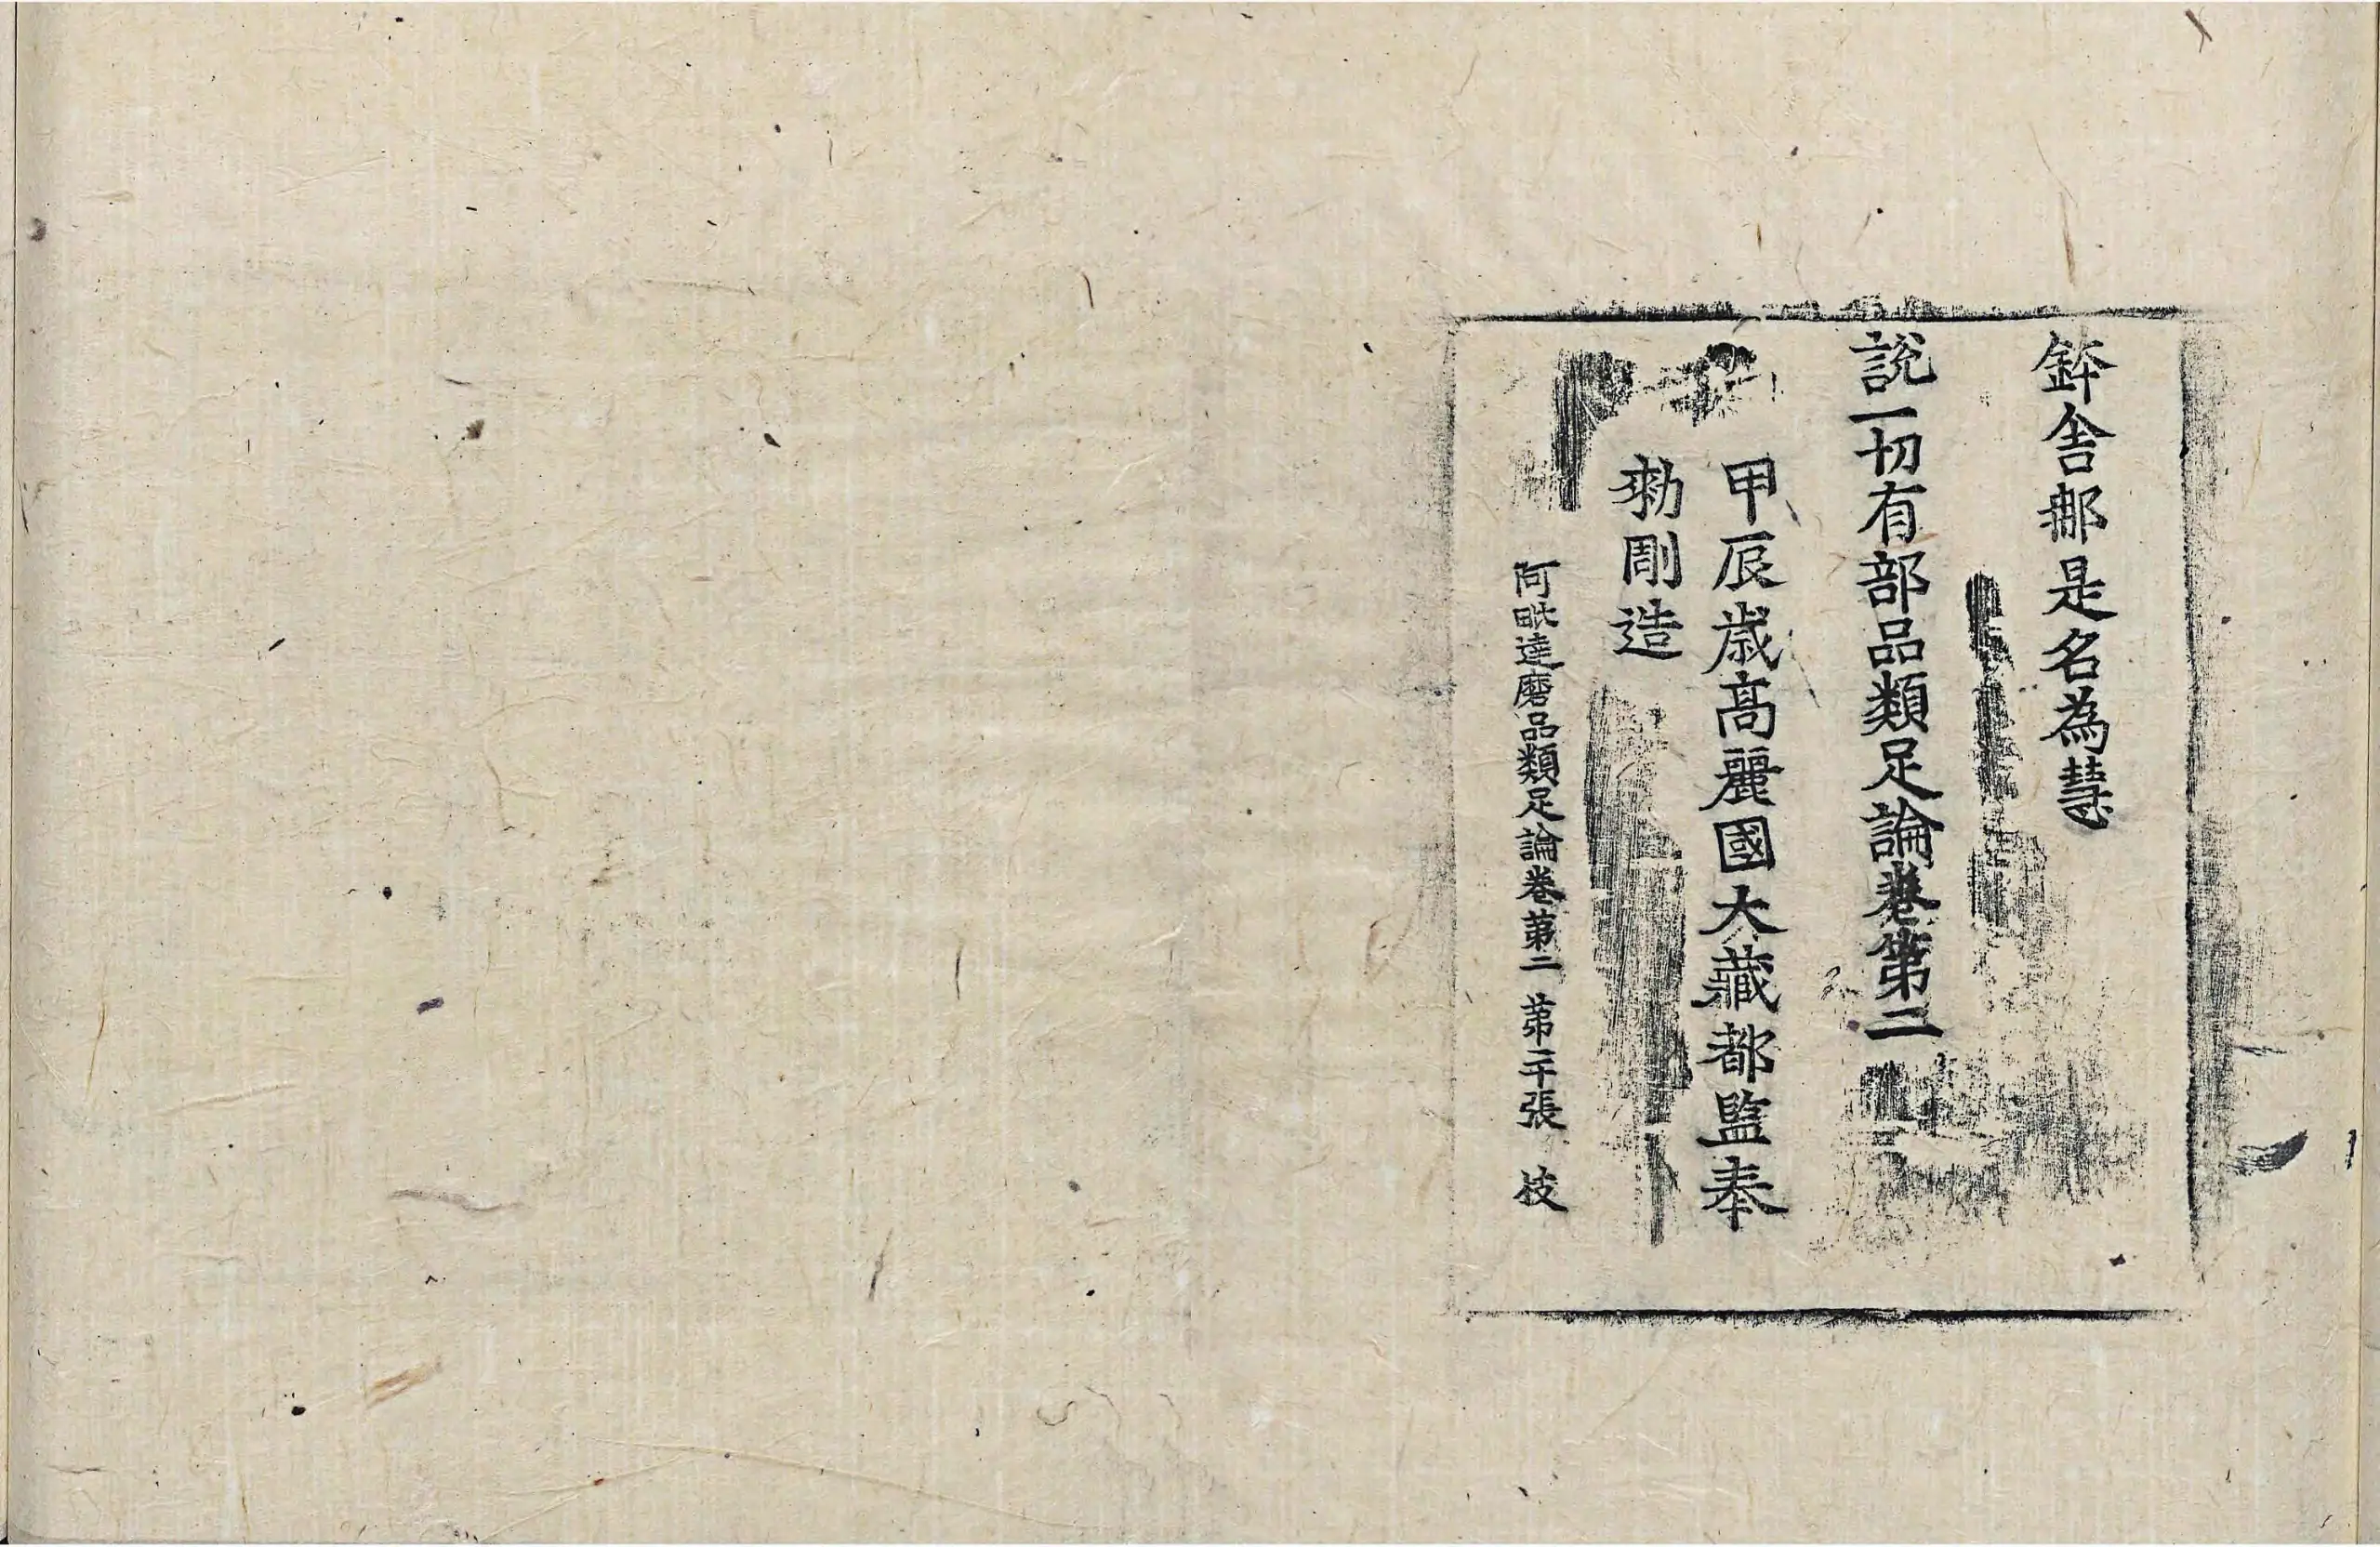 鉢舍那是名為慧
說一切有部品類足論卷第二
甲辰歲高麗國大藏都監奉
勑彫造
阿毗達磨品類足論卷第二 第二十張 枝